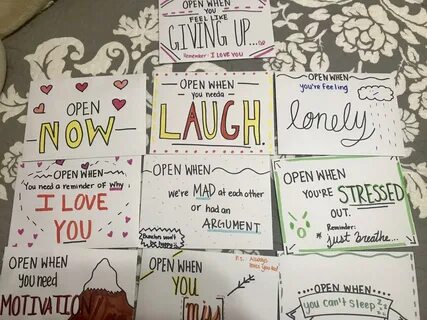 OPEN WHEN
YOU
FEEL LIKE
GIVING UP...
Remember: I LOVE YOU
OPEN
NOW
OPEN WHEN
you needa
LAUGH.
OPEN WHEN
you're feeling
lonely
OPEN WHEN
You need a reminder of Why
I LOVE
YOU
OPEN WHEN
we're MAD at each other
or had an
ARGUMENT
OPEN WHEN
YOU'RE STRESSED
OUT.
Reminder:
* just breathe...
OPEN WHEN
you need
MOTIVATION
P.S. Always
loves you
OPEN WHEN
YOU
miss
OPEN WHEN
you can't sleep zz